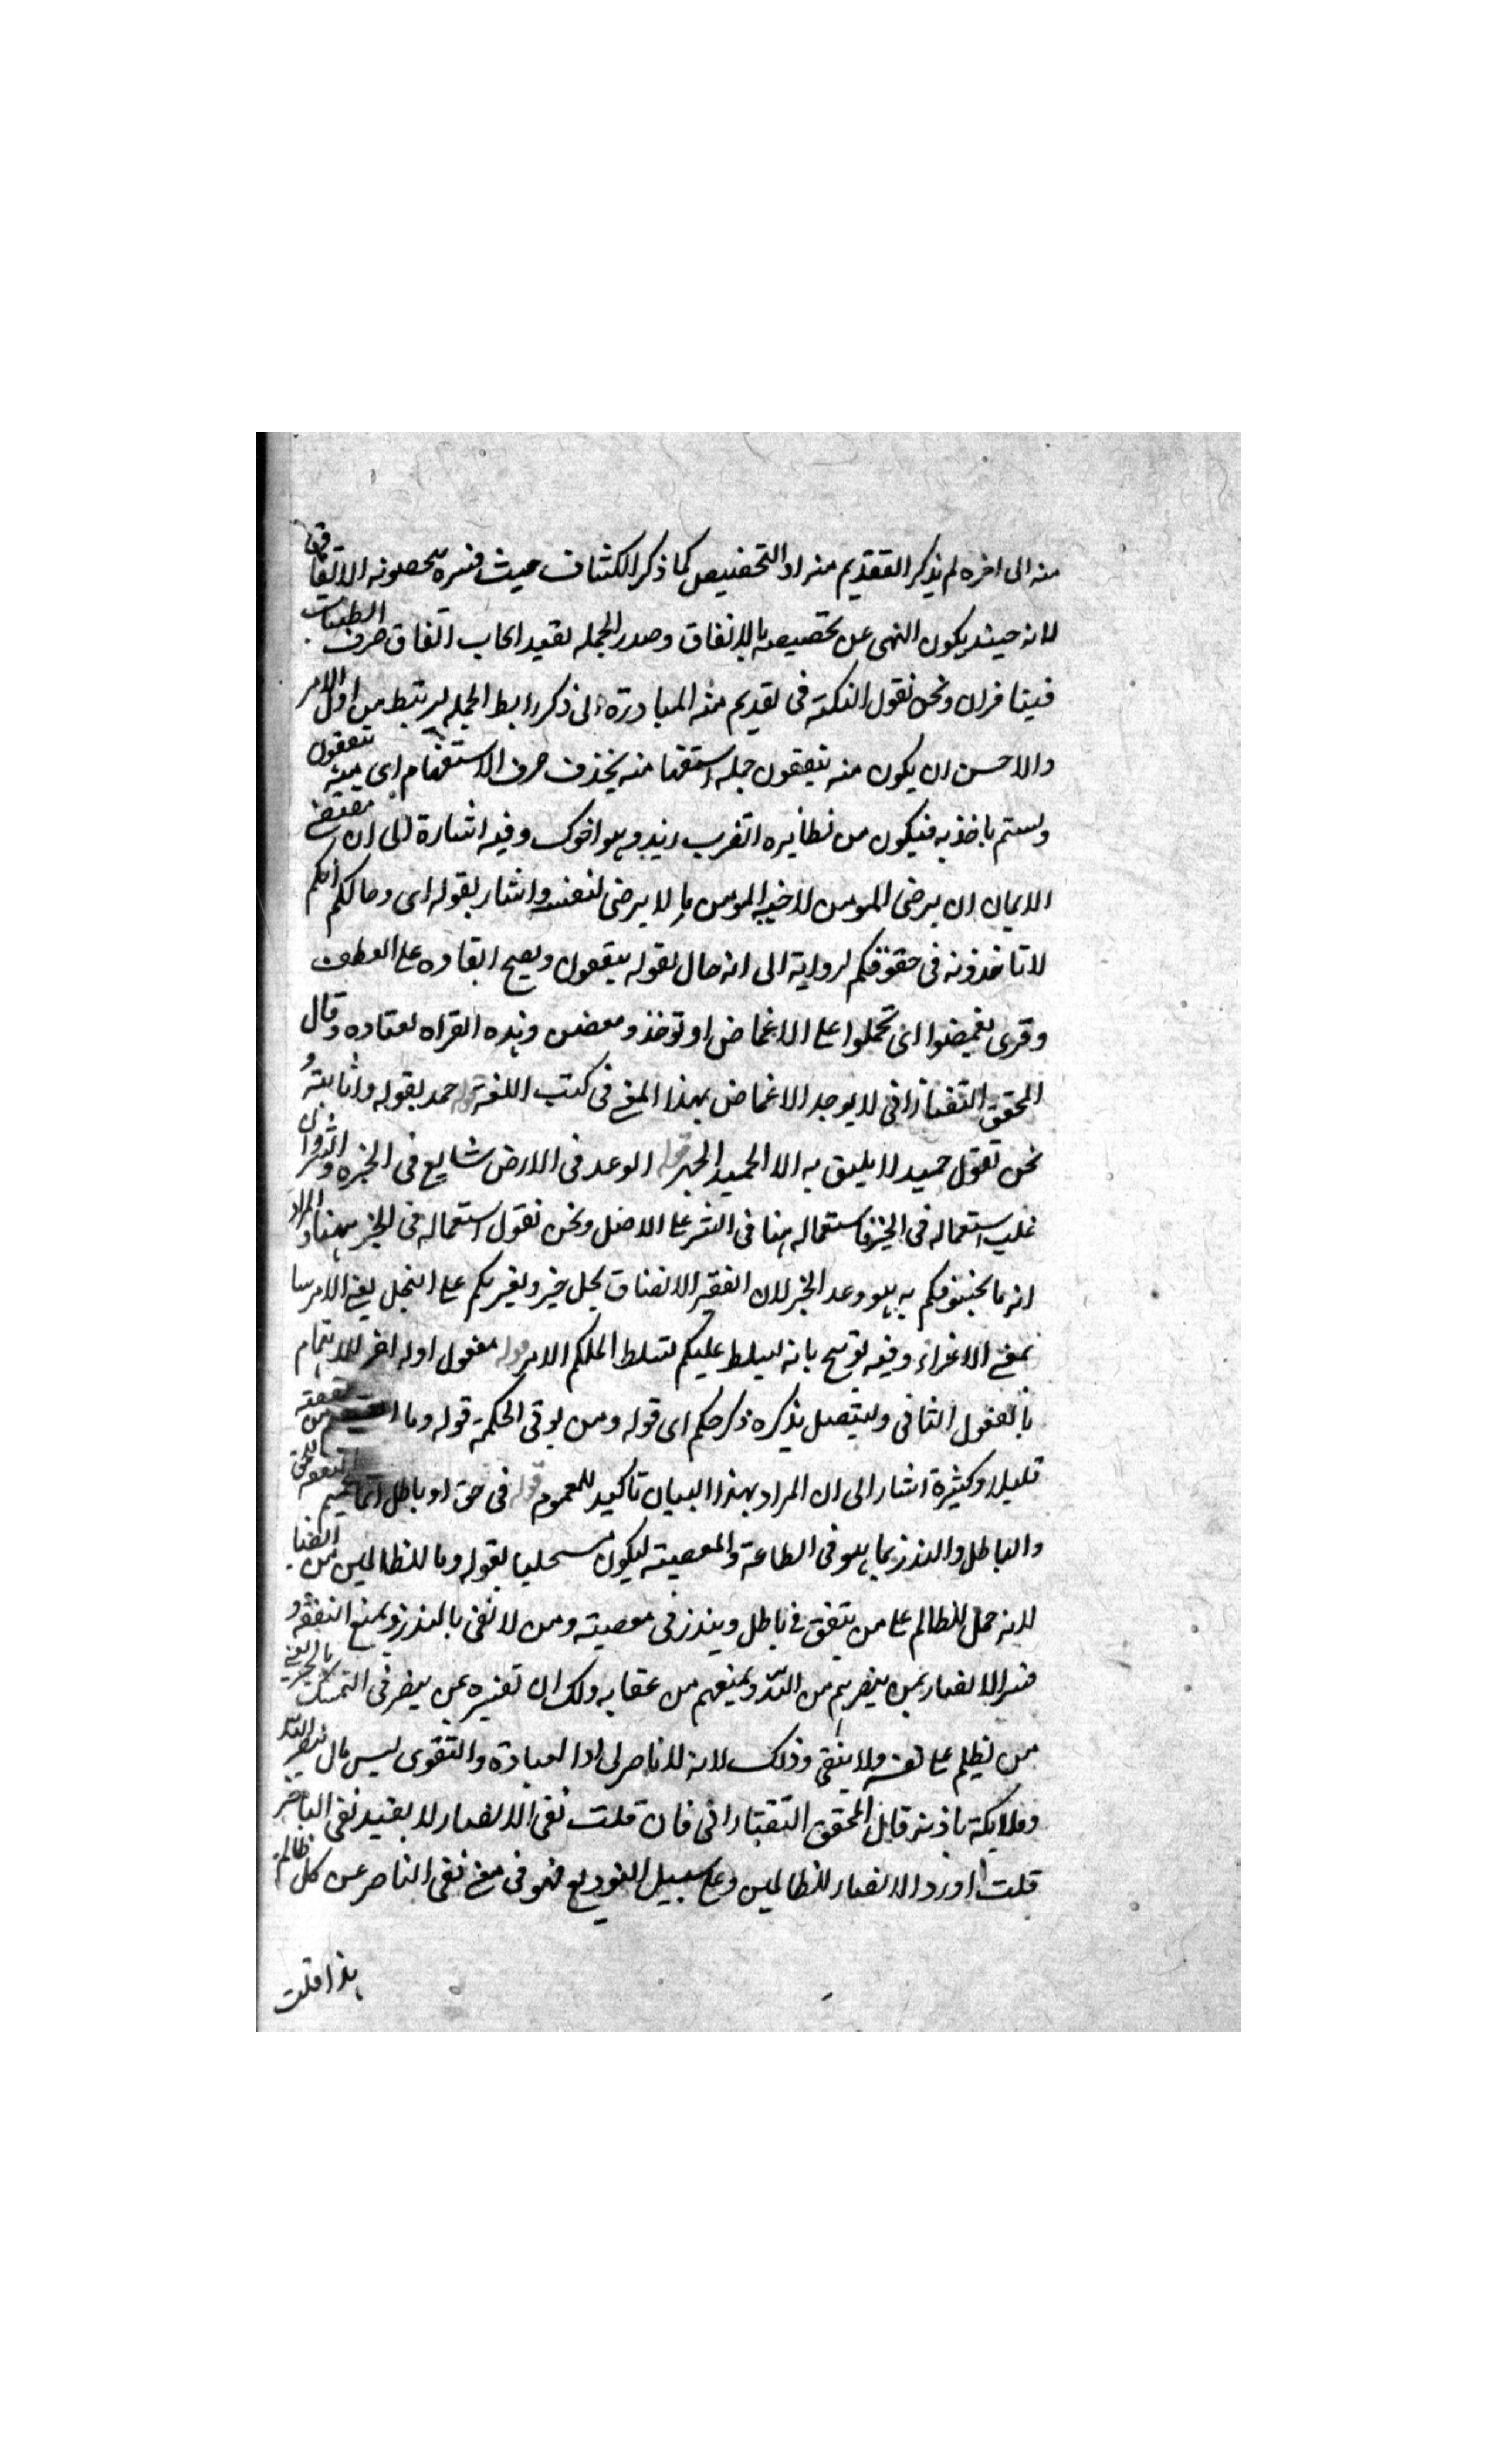 منه الى اخره لم يذكر التقديم منه ادا التخصيص كما ذكر الكشاف حيث فسره يخصونه الانفاق
لانه حينئذ يكون النهى عن تخصيصه بالانفاق وصدر الجمله يفيد ايجاب اتفاق صرف الطيبات
فيتنافران ونحن نقول النكتة فى تقديم منه المبادرة الى ذكر رابط الجملة ليرتبط من اول الامر
والاحسن ان يكون منه تنفقون جملة استفهامنه بحذف حرف الاستفهام اى منه تنفقون
ولستم باخذيه فيكون من نظايره اتضرب زيد وهو اخوك وفيه اشارة الى ان مقتضى
الايمان ان يرضى المومن لاخيه المومن ما لا يرضى لنفسه واشار بقوله اى وحالكم انكم
لا تاخذونه فى حقوقكم لرداية الى انه حال لقوله ينفقون ويصح ابقاوه على العطف
وقرى تغمضوا اى تحملوا على الاغماض او توخذ ومغمضين وهذه القراه لقتاده وقال
المحقق التفتازانى لا يوجد الاغماض بهذا المعنى فى كتب اللغة قوله حمد بقوله واثابته و
نحن نقول حميد لا يليق به الا الحميد الخير قوله الوعد فى الارض شايع فى الخير والشر وان
غلب استعماله فى الخير فاستعماله هنا فى الشر على الاصل ونحن نقول استعماله فى الخير ههنا والمراد
انه ما يخوفكم به هو وعد الخير لان الفقير الانفاق لجل خير ويغريكم على البخل يعنى الامر ها
بمعنى الاغراء وفيه توبيخ بانه ليسلط عليكم تسلط الملكم الامر قوله مفعول اوله اخر للاهتمام
بالمفعول الثانى وليتصل بذكره ذكر حكم اى قوله ومن يوتى الحكمة قوله وما من نفقته
قليلا وكثيرة اشار الى ان المراد بهذا البيان تاكيد للعموم قوله فى حق او باطل انما
والباطل والنذر بما هو فى الطاعة والمعصية ليكون بقوله وما للظالمين من انصار
لانه حمل الظالم على من ينفق فى باطل وينذر فى معصيته ومن لا نفى بالنذر ويمنع النفقة و
فسر الانصار بمن ينصرهم من الله ويمنعهم من عقابه ولك ان تفسيره بمن ينصر فى التمسك
من يظلم على نفسه ولا يتقى وذلك لانه لا ناصر لى ادا العبادة والتقوى ليس مال الله
وملايكة باذنه قابل المحقق التفتازانى فان قلت نفى الانصار لا يفيد نفى الناصر
قلت اورد الانصار للظالمين وعلى سبيل التوديع فهو فى معنى نفى الناصر عن كل ظالم
هذا قلت